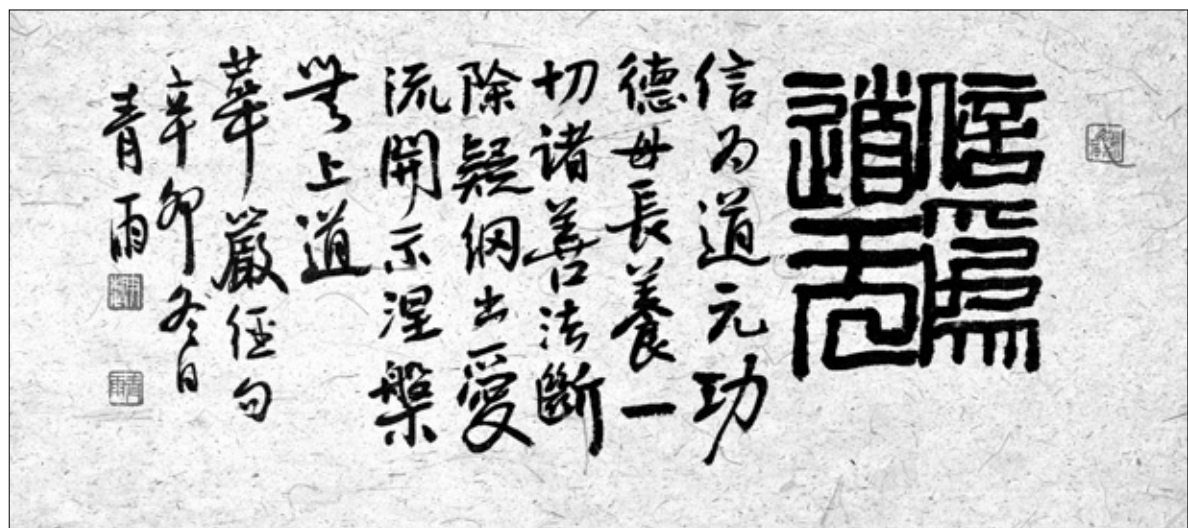 信爲
道元
信为道元功
德母長養一
切諸善法斷
除疑網出愛
流開示涅槃
無上道
華嚴經句
辛卯冬日
青雨